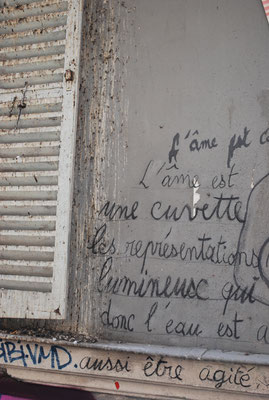 L'âme est
L'âme est
une cuvette
les représentations
lumineuse qui
donc l'eau est a
aussi être agité